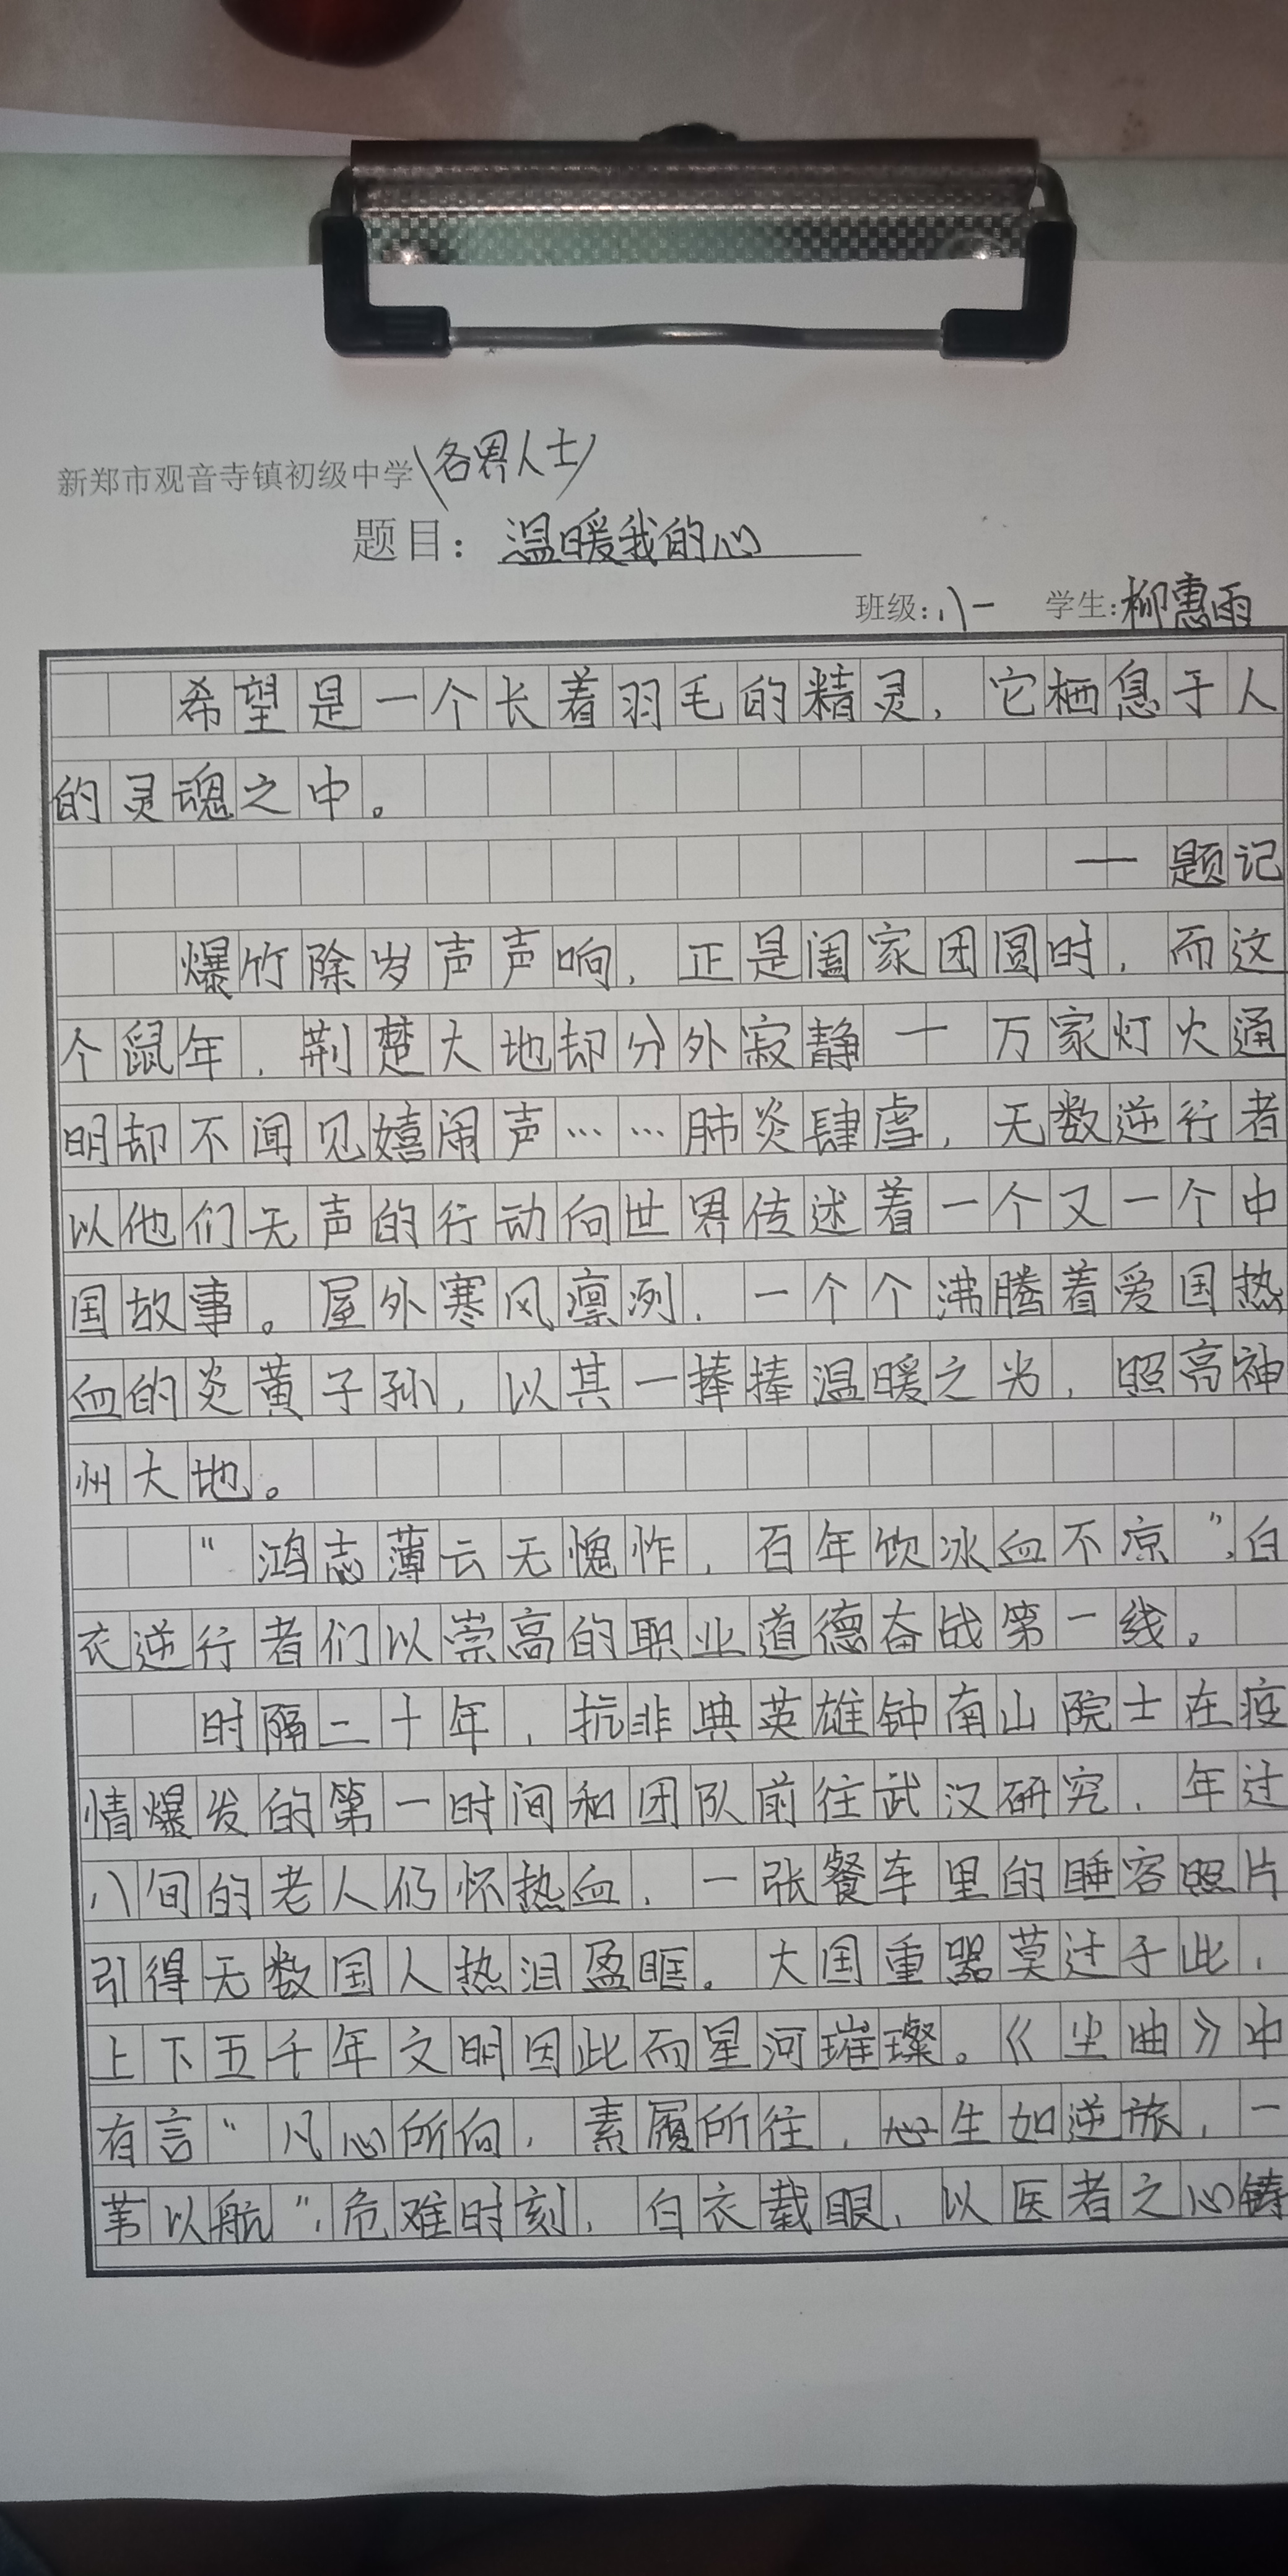 新郑市观音寺镇初级中学(各界人士)
题目：温暖我的心
班级：八一 学生：柳惠雨
希望是一个长着羽毛的精灵，它栖息于人
的灵魂之中。
——题记
爆竹除岁声声响，正是阖家团圆时，而这
个鼠年，荆楚大地却分外寂静——万家灯火通
明却不闻见嬉闹声……肺炎肆虐，无数逆行者
以他们无声的行动向世界传述着一个又一个中
国故事。屋外寒风凛冽，一个个沸腾着爱国热
血的炎黄子孙，以其一捧捧温暖之光，照亮神
州大地。
“鸿志薄云无愧怍，百年饮冰血不凉”，白
衣逆行者们以崇高的职业道德奋战第一线。
时隔二十年，抗非典英雄钟南山院士在疫
情爆发的第一时间和团队前往武汉研究，年过
八旬的老人仍怀热血，一张餐车里的睡容照片
引得无数国人热泪盈眶。大国重器莫过于此，
上下五千年文明因此而星河璀璨。《尘曲》中
有言“凡心所向，素履所往，生如逆旅，一
苇以航”，危难时刻，白衣载眼，以医者之心铸